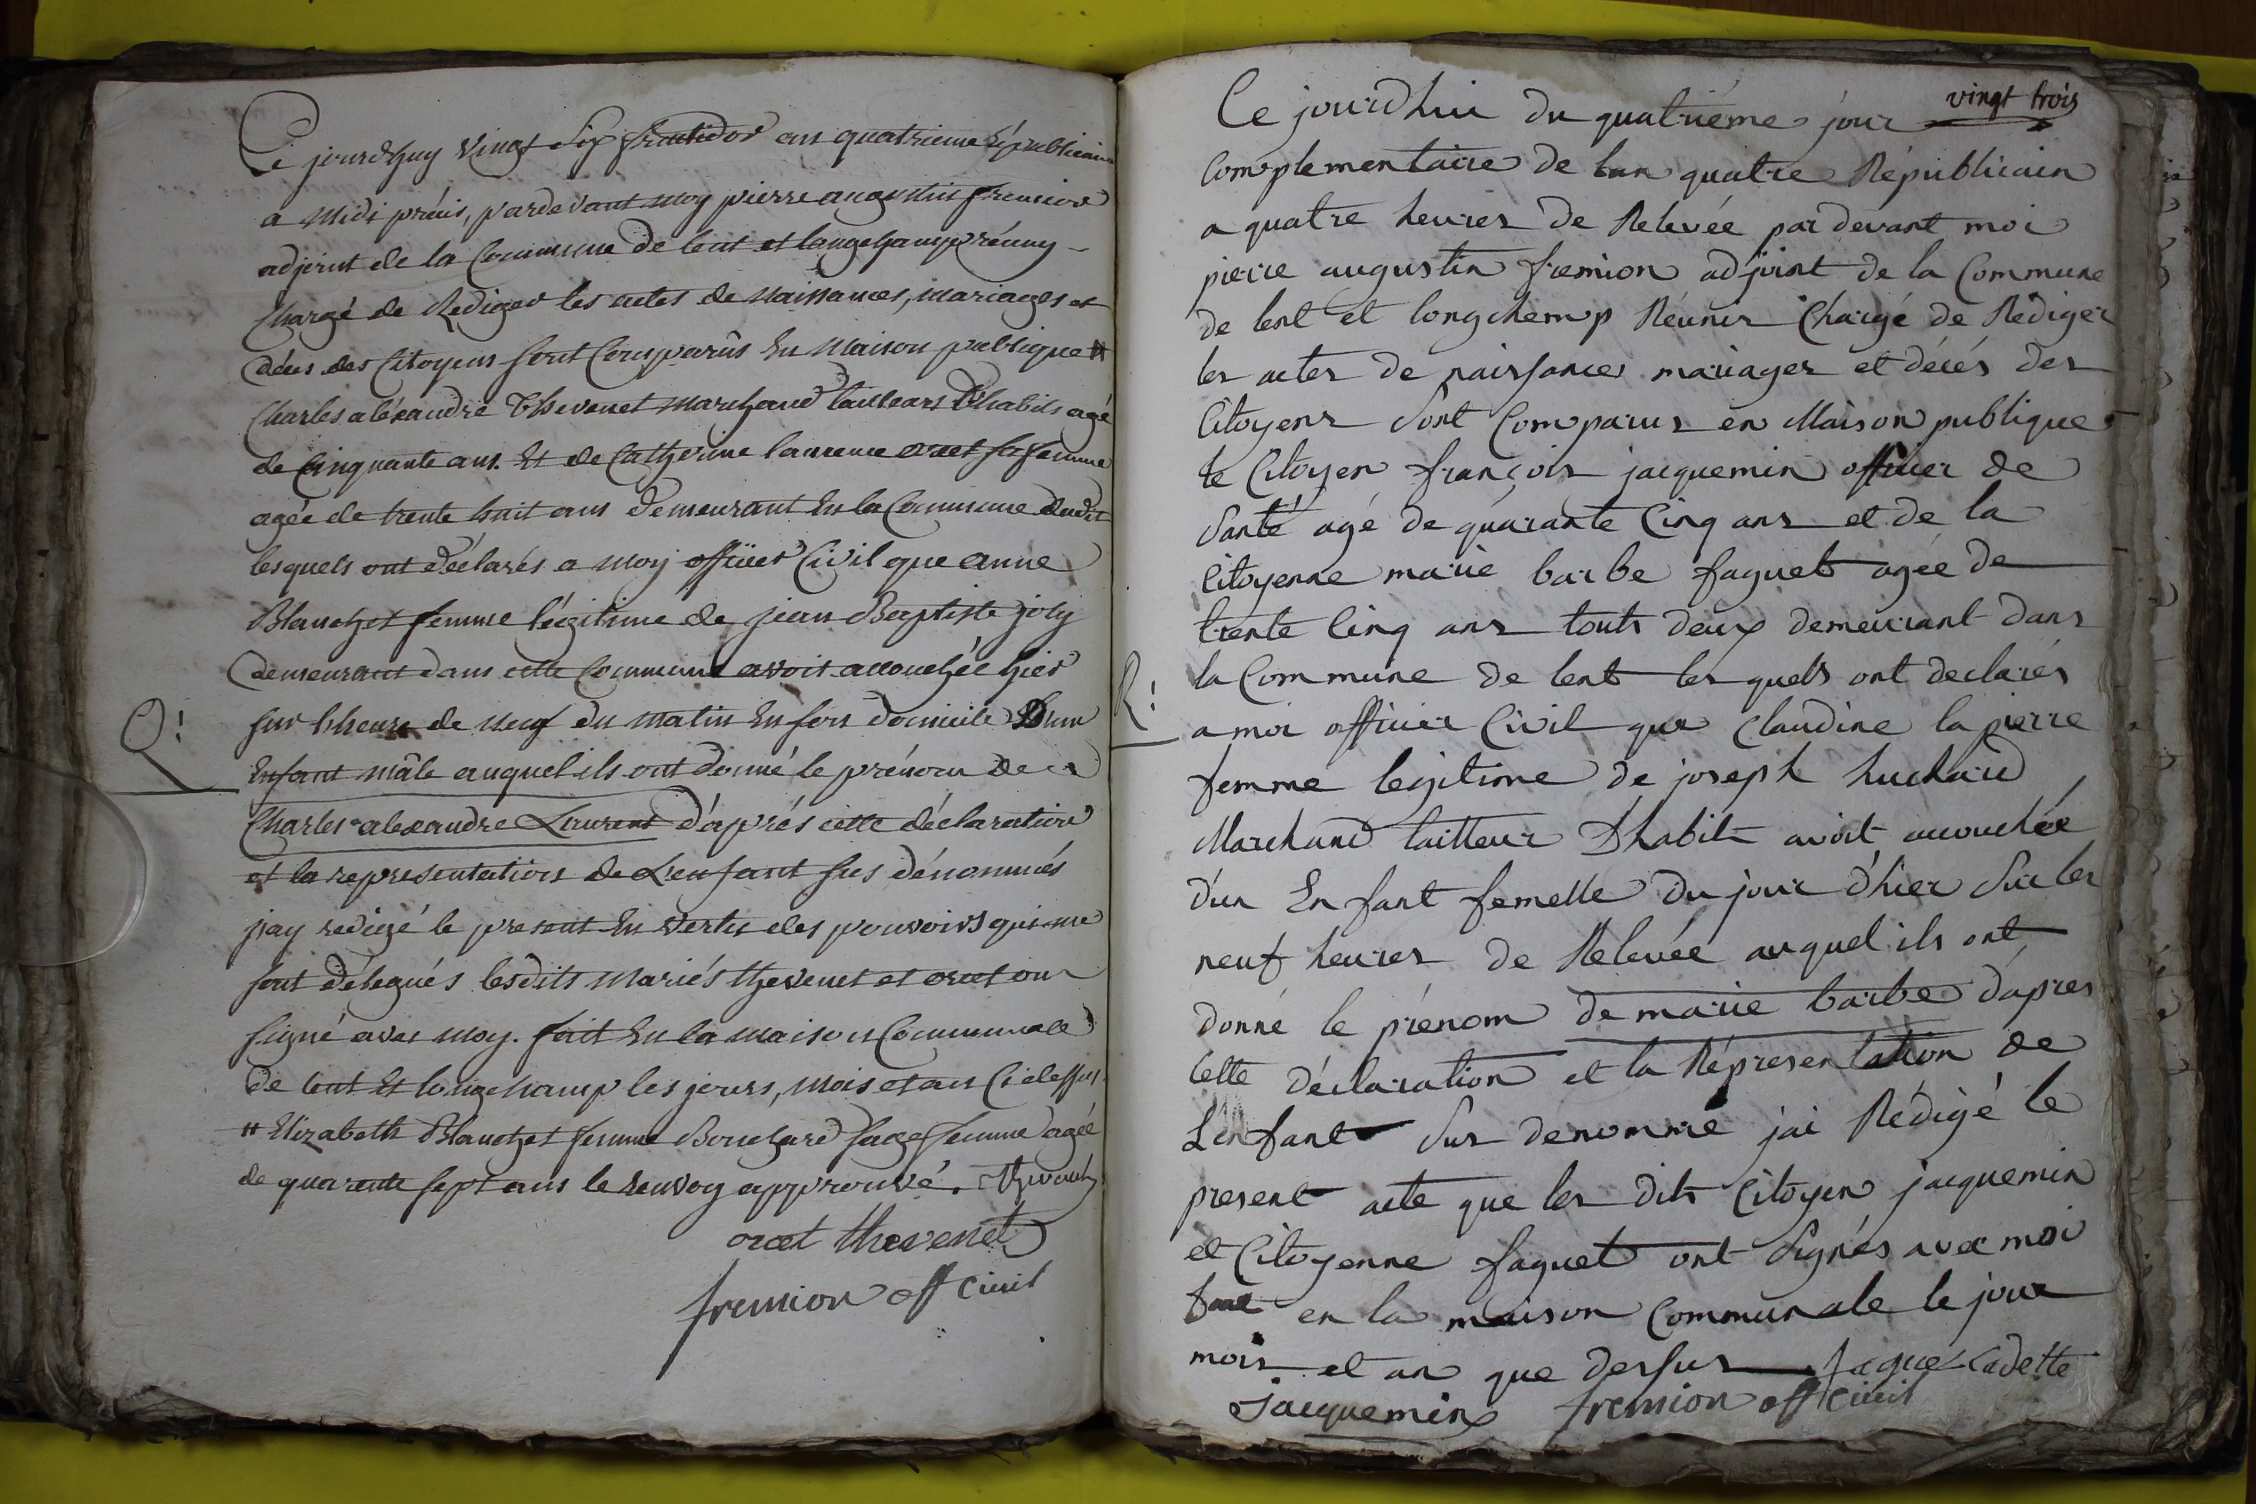 Ce jourdhuy vingt six fructidor an quatrieme Républicain
a midi précis, pardevant moy pierre augustin fremion
adjoint de la Commune de lent et longchamp réuny
Chargé de Rediger les actes de Naissances, mariages et
décès des Citoyens sont Comparûs En Maison publique #
Charles aléxandre Thevenet marchand tailleurs D'habits agé
de Cinquante ans. Et de Catherine laurence oræt sa femme
agée de trente huit ans demeurant En la Commune dudit
lesquels ont déclarés a moy officier Civil que anne
Blanchet femme légitime de jean Baptiste joly
demeurant dans cette Commune avoit accouchée hier
sur Lheure de neuf du matin En son domicile D'un
Q!
Enfant mâle auquel ils ont donné le prénom de
Charles alexandre Laurent d'après cette déclaration
et la representation de L'enfant sus dénommés
j'ay redigé le present En vertu des pouvoirs qui me
sont délegués lesdits Mariés thevenet et oræt ont
signé avec moy. fait En la maison Communale
de lent Et longchamp les jours, mois et an Cidessus
# Elizabeth Blanchet femme Bouchard sage femme agée
de quarente sept ans le renvoy approuvé.
oræt thevenet
fremion off civil
vingt trois
Ce jourdhui du quatriéme jour
Complementaire de lan quatre Républicain
a quatre heures de Relevée par devant moi
pierre augustin fremion adjoint de la Commune
de lent et longchemp Réunis Chargé de Rediger
les actes de naissances mariages et décés des
Citoyens Sont Comparus en Maison publique
le Citoyen françois jacquemin officier de
Santé agé de quarante Cinq ans et de la
Citoyenne marie barbe faguet agée de
trente Cinq ans touts deux demeurant dans
la Commune de lent les quels ont declarés
R!
a moi officier Civil que Claudine la pierre
femme legitime de joseph huchard
Marchand tailleur D'habits avoit accouchée
d'un Enfant femelle du jour d'hier Sur les
neuf heures de Relevée auquel ils ont
donné le prénom de marie barbe d'apres
Cette déclaration et la Répresentation de
L'enfant Sus denommé jai Rédigé le
present acte que les dits Citoyen jacquemin
et Citoyenne faguet ont Signés avec moi
en la maison Communale le jour
mois et an que dessus faguet Cadette
jacquemin fremion off civil